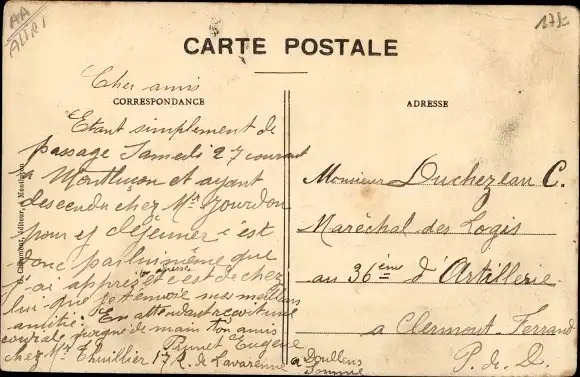 AA
ALLRI
CARTE POSTALE
Cher amis
CORRESPONDANCE
Etant simplement de
passage Samedi 27 courant
à Montluçon et ayant
descendu chez Mr Jourdon
pour y déjeuner c'est
donc par lui même que
j'ai appris ton adresse et c'est de chez
lui que je t'envoie mes meilleurs
amitié. En attendant reçoit une
cordiale poigné de main Ton amis
Pumet Eugène
chez Mr Thuillier 17 R. de Lavarenne
a Doullens
Somme
ADRESSE
Monsieur Duchezeau C.
Maréchal des Logis
au 36ème d'Artillerie
a Clermont-Ferrand
P. de D.